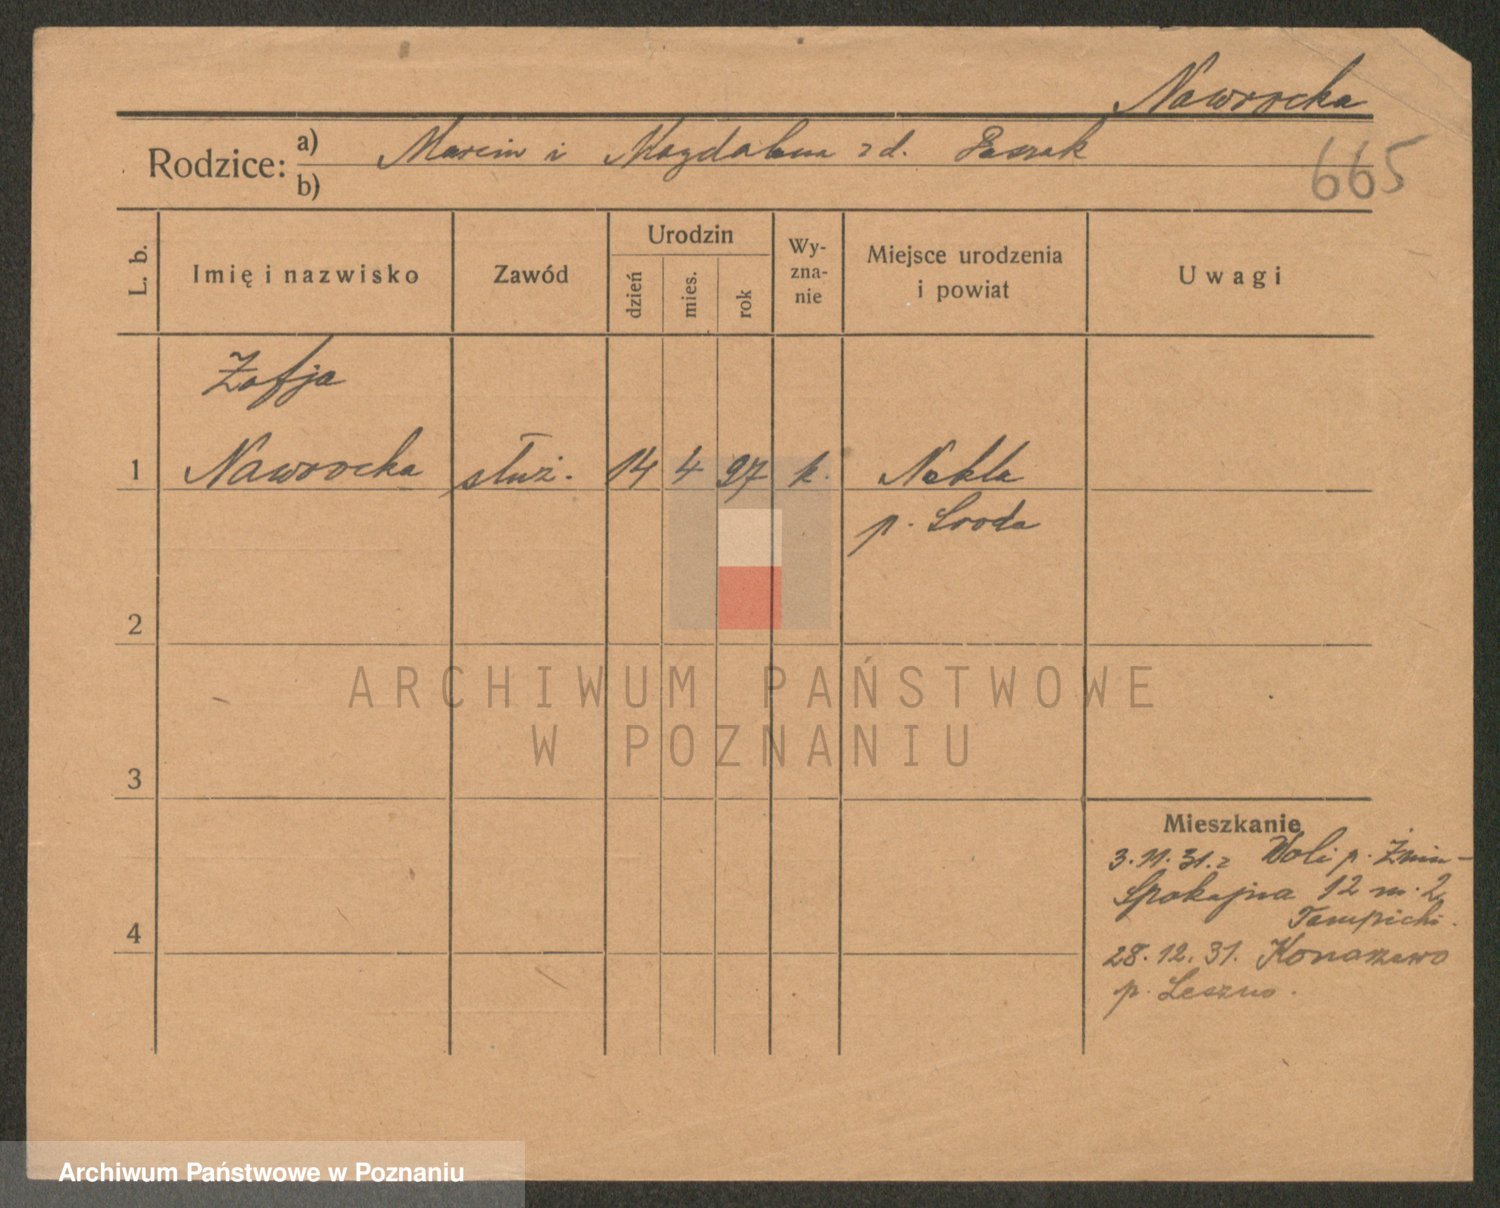 Nawrocka
Rodzice: a) Marcin i Magdalena z d.
b)
665
L. b.
Imię i nazwisko
Zawód
Urodzin
dzień
mies.
rok
Wy-
zna-
nie
Miejsce urodzenia
i powiat
Uwagi
Zofja
1 Nawrocka służ. 14 4 97 k. Nekla
p. Sroda
2
3
4
Mieszkanie
3.11.31. z Woli p. Żnin -
Spokojna 12 m. 2
28.12.31. Konarzewo
p. Leszno.
ARCHIWUM PAŃSTWOWE
W POZNANIU
Archiwum Państwowe w Poznaniu